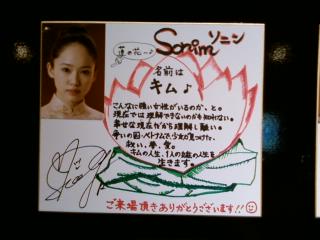 Sonim ソニン
蓮の花〜♪
名前は
キム♪
こんなに強い女性がいるのか、と。
現在では理解できないのかも知れない。
幸せな現在だから理解し難い。
争いの国・ベトナムで
救い、夢、食。
キムの人生、1人の娘の人生を
生きます。
ご来場頂きありがとうございます!!